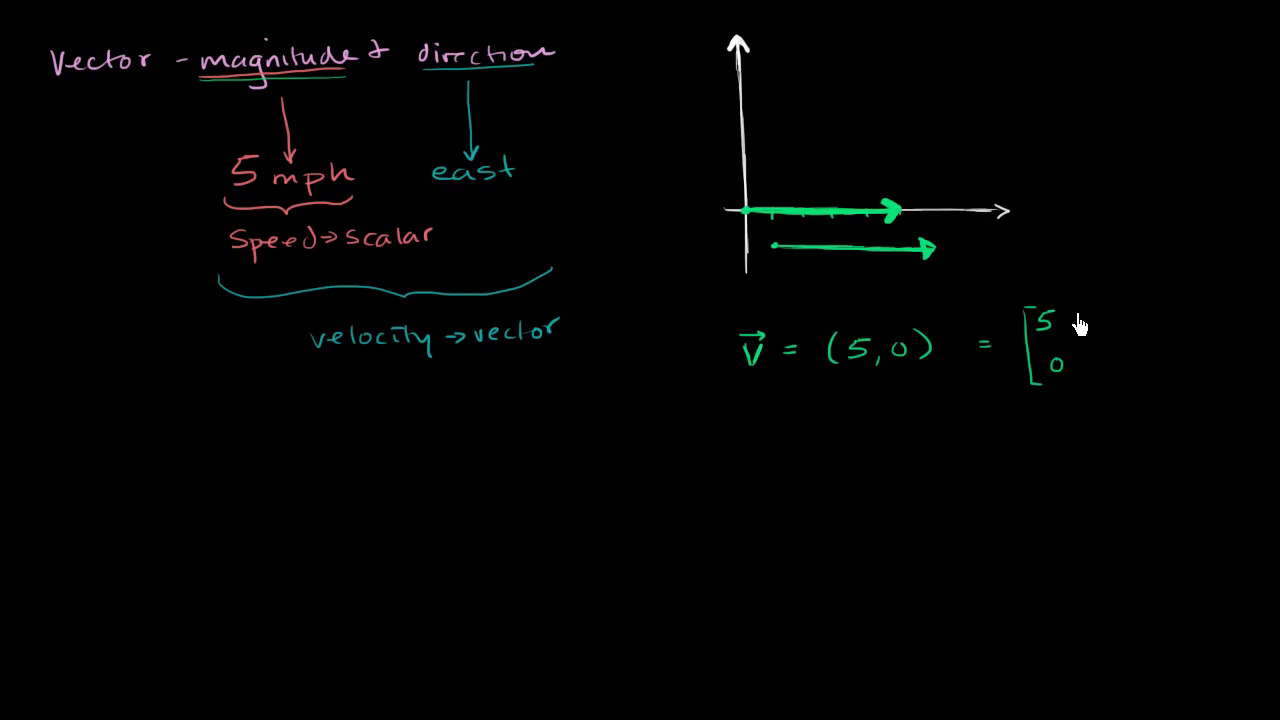 Vector - magnitude & direction
5 mph east
Speed => scalar
velocity -> vector
v⃗ = (5,0) = [5
0